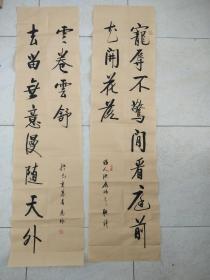 寵辱不驚閒看庭前
花開花落
去留無意漫隨天外
雲卷雲舒